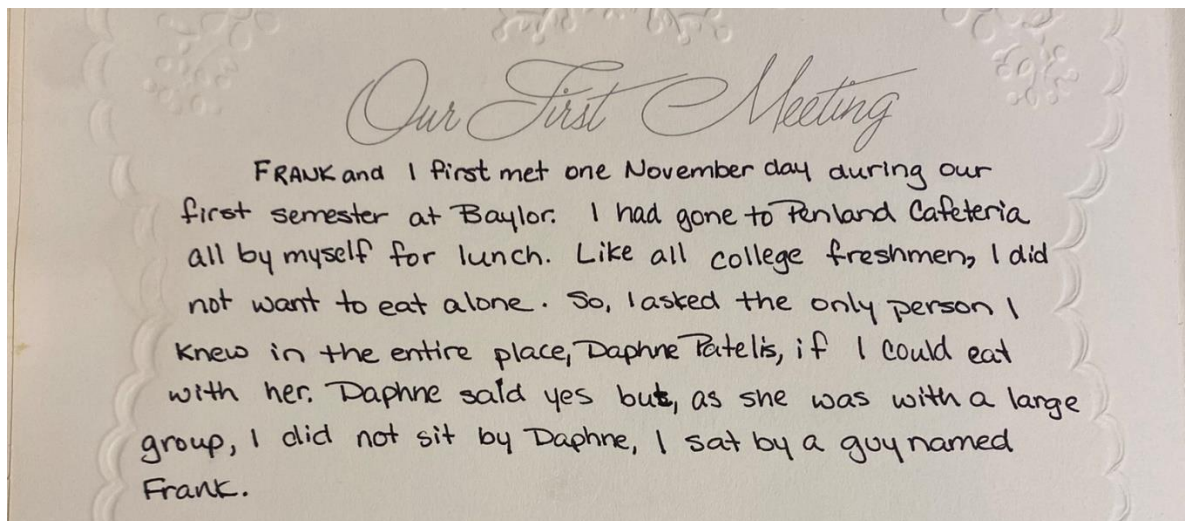 Our First Meeting
FRANK and I first met one November day during our
first semester at Baylor. I had gone to Penland Cafeteria
all by myself for lunch. Like all college freshmen, I did
not want to eat alone. So, I asked the only person I
knew in the entire place, Daphne Patelis, if I could eat
with her. Daphne said yes but, as she was with a large
group, I did not sit by Daphne, I sat by a guy named
Frank.